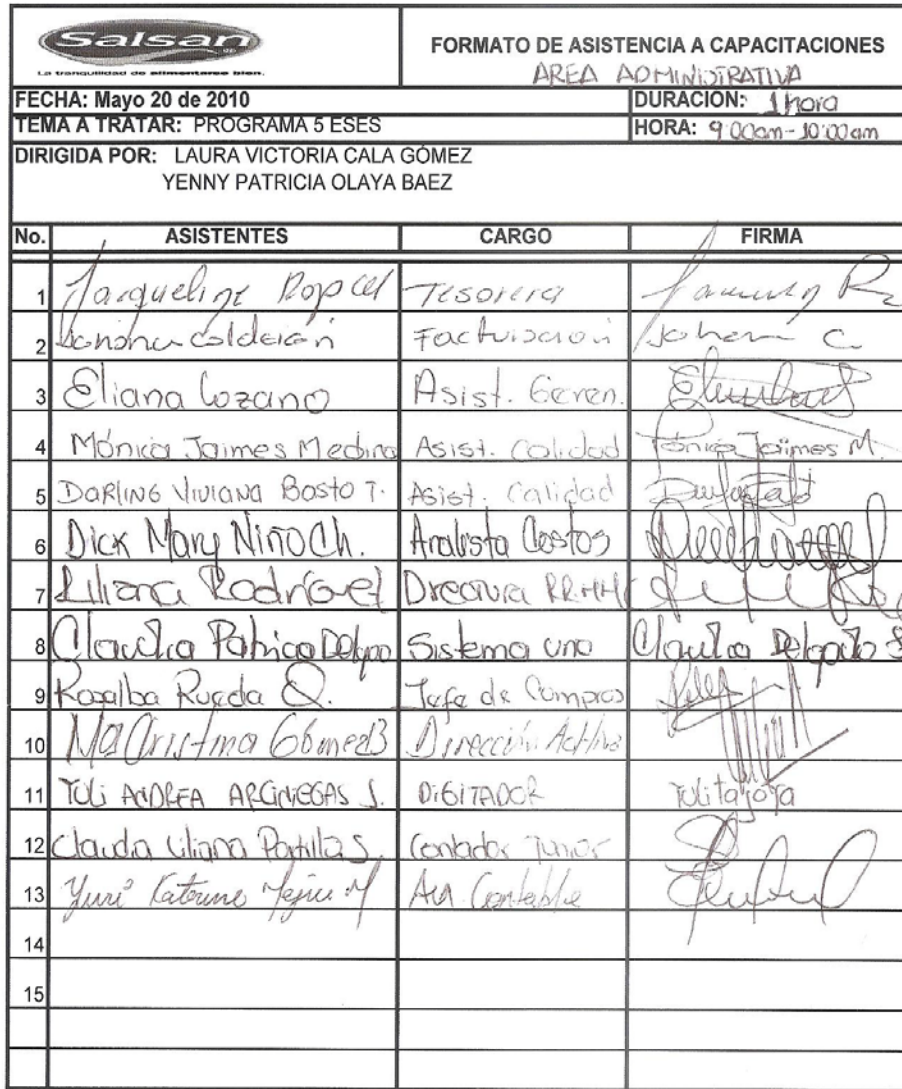 Salsan
La tranquilidad de alimentarse bien.
FORMATO DE ASISTENCIA A CAPACITACIONES
AREA ADMINISTRATIVA
FECHA: Mayo 20 de 2010 DURACION: 1 hora
TEMA A TRATAR: PROGRAMA 5 ESES HORA: 9:00am-10:00am
DIRIGIDA POR: LAURA VICTORIA CALA GÓMEZ
YENNY PATRICIA OLAYA BAEZ
No. ASISTENTES CARGO FIRMA
1 Jacqueline Tesorera
2 Calderón Facturación Johana C.
3 Eliana Lozano Asist. Geren.
4 Mónica Jaimes Medina Asist. Calidad Mónica Jaimes M.
5 DARLING VIVIANA BOSTO T. Asist. Calidad
6 Dick Mary Niño Ch. Analista Costos
7 Liliana Rodríguez Directora RR.HH
8 Claudia Patricia Sistema uno Claudia Delgado S
9 Rosalba Rueda Q. Jefe de Compras
10 Ma Cristina Gómez B Dirección
11 YULI ANDREA ARCINIEGAS J. DIGITADOR
12 Claudia Liliana S. Contador Junior
13 Yuri Katerine Contable
14
15